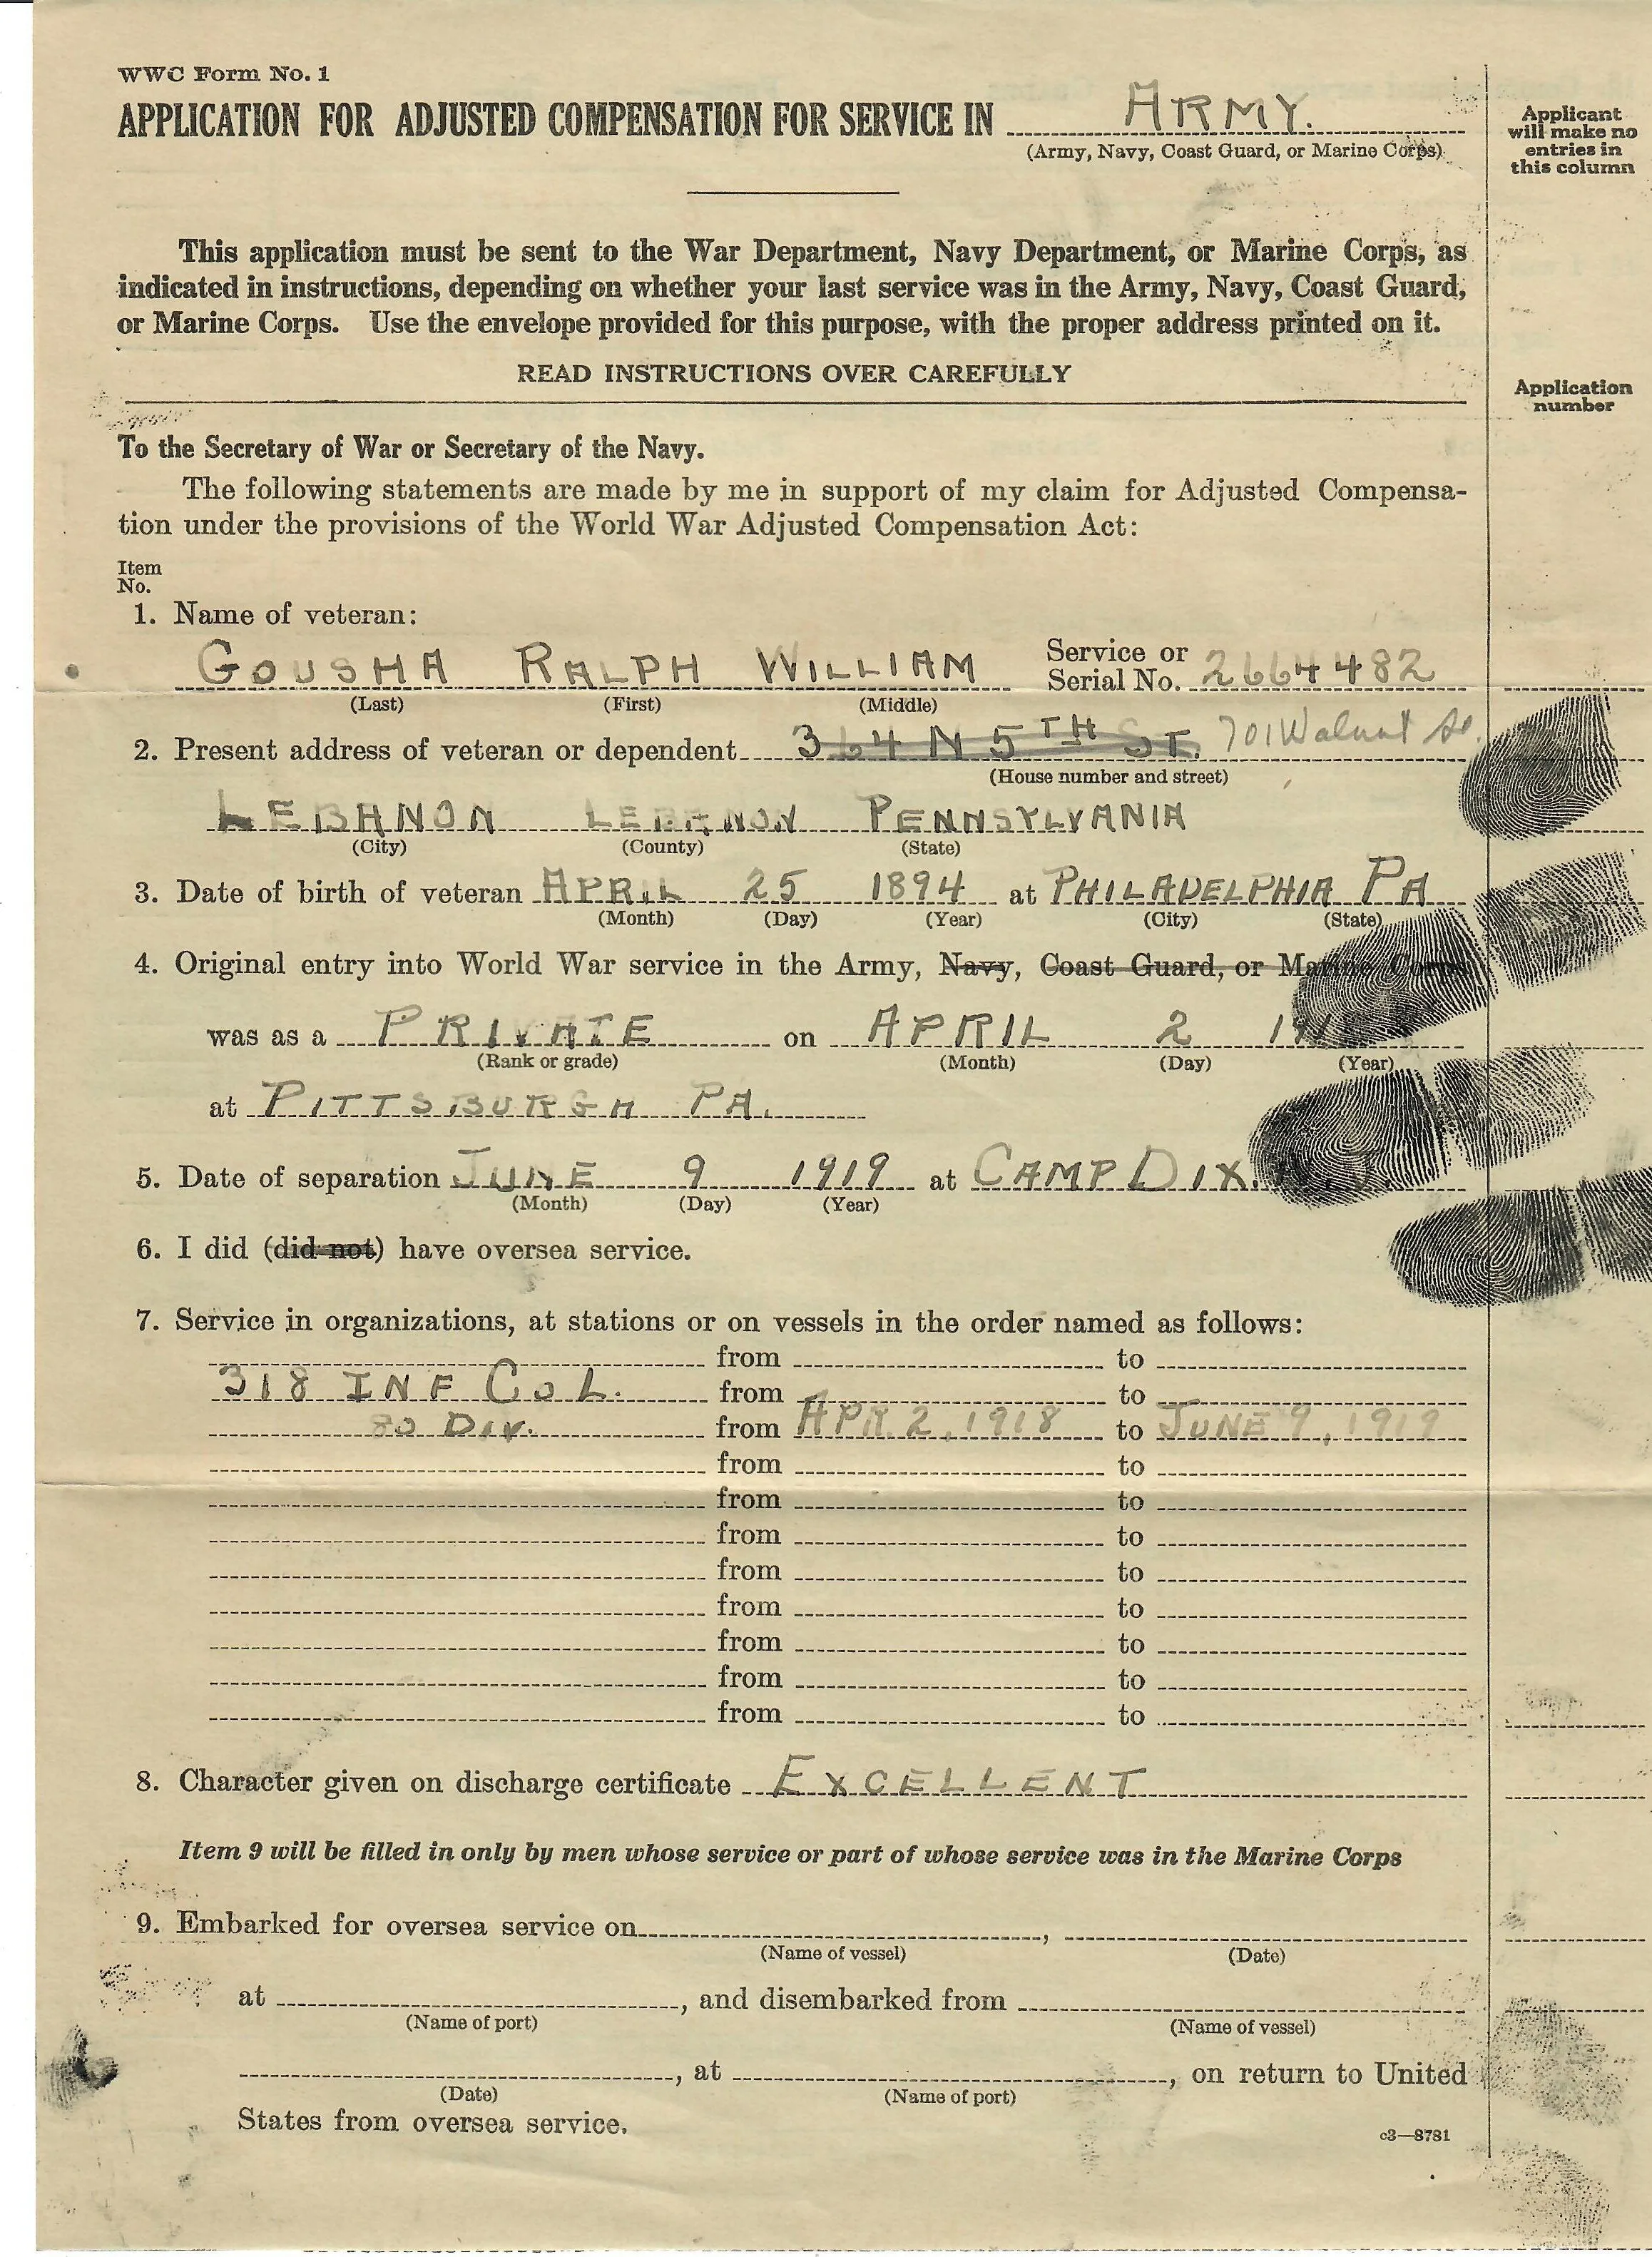 WWC Form No. 1
APPLICATION FOR ADJUSTED COMPENSATION FOR SERVICE IN ARMY.
(Army, Navy, Coast Guard, or Marine Corps)
Applicant
will make no
entries in
this column
This application must be sent to the War Department, Navy Department, or Marine Corps, as
indicated in instructions, depending on whether your last service was in the Army, Navy, Coast Guard,
or Marine Corps. Use the envelope provided for this purpose, with the proper address printed on it.
READ INSTRUCTIONS OVER CAREFULLY
Application
number
To the Secretary of War or Secretary of the Navy.
The following statements are made by me in support of my claim for Adjusted Compensa-
tion under the provisions of the World War Adjusted Compensation Act:
Item
No.
1. Name of veteran:
GOUSHA RALPH WILLIAM Service or
Serial No. 2664482
(Last) (First) (Middle)
2. Present address of veteran or dependent 364 N 5TH ST. 701 Walnut St.
(House number and street)
LEBANON LEBANON PENNSYLVANIA
(City) (County) (State)
3. Date of birth of veteran APRIL 25 1894 at PHILADELPHIA PA
(Month) (Day) (Year) (City) (State)
4. Original entry into World War service in the Army, Navy, Coast Guard, or Marine Corps
was as a PRIVATE on APRIL 2
(Rank or grade) (Month) (Day) (Year)
at PITTSBURGH PA.
5. Date of separation JUNE 9 1919 at CAMP DIX. N.J.
(Month) (Day) (Year)
6. I did (did not) have oversea service.
7. Service in organizations, at stations or on vessels in the order named as follows:
from to
318 INF CO L. from to
80 DIV. from APR. 2, 1918 to JUNE 9, 1919
from to
from to
from to
from to
from to
from to
from to
from to
8. Character given on discharge certificate EXCELLENT
Item 9 will be filled in only by men whose service or part of whose service was in the Marine Corps
9. Embarked for oversea service on , 
(Name of vessel) (Date)
at , and disembarked from
(Name of port) (Name of vessel)
, at , on return to United
(Date) (Name of port)
States from oversea service.
c3—8781